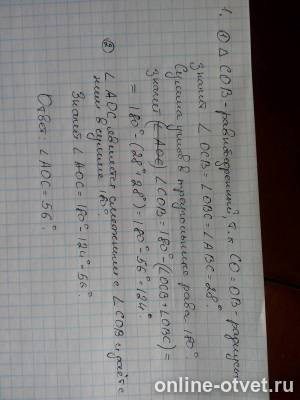 1. ① △ COB - равнобедренный, т.к CO = OB - радиусы
Значит ∠ OCB = ∠ OBC = ∠ ABC = 28°
Сумма углов в треугольнике равна 180°
Значит (∠ AOC) ∠ COB = 180° - (∠OCB + ∠OBC) =
= 180° - (28° + 28°) = 180° - 56° = 124°.
② ∠ AOC является смежным с ∠ COB и даёт с
ним в сумме 180°
Значит ∠ AOC = 180° - 124° = 56°.
Ответ: ∠ AOC = 56°
online-otvet.ru